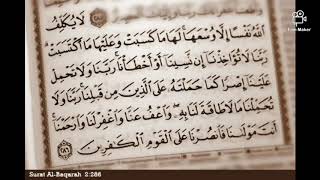 لَا يُكَلِّفُ
ٱللَّهُ نَفْسًا إِلَّا وُسْعَهَا لَهَا مَا كَسَبَتْ وَعَلَيْهَا مَا ٱكْتَسَبَتْ
رَبَّنَا لَا تُؤَاخِذْنَا إِن نَّسِينَا أَوْ أَخْطَأْنَا رَبَّنَا وَلَا تَحْمِلْ
عَلَيْنَا إِصْرًا كَمَا حَمَلْتَهُ عَلَى ٱلَّذِينَ مِن قَبْلِنَا رَبَّنَا وَلَا
تُحَمِّلْنَا مَا لَا طَاقَةَ لَنَا بِهِ وَٱعْفُ عَنَّا وَٱغْفِرْ لَنَا وَٱرْحَمْنَا
أَنتَ مَوْلَىٰنَا فَٱنصُرْنَا عَلَى ٱلْقَوْمِ ٱلْكَٰفِرِينَ ٢٨٦
Surat Al-Baqarah 2:286